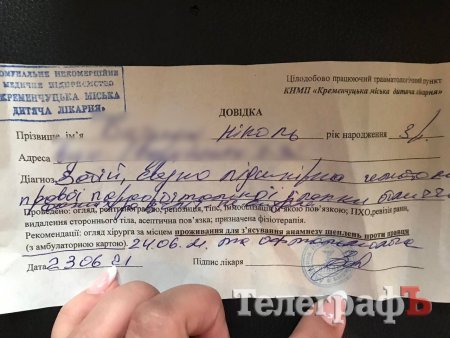 КОМУНАЛЬНЕ НЕКОМЕРЦІЙНЕ
МЕДИЧНЕ ПІДПРИЄМСТВО
«КРЕМЕНЧУЦЬКА МІСЬКА
ДИТЯЧА ЛІКАРНЯ»
Цілодобово працюючий травматологічний пункт
КНМП «Кременчуцька міська дитяча лікарня»
ДОВІДКА
Прізвище ім'я Ніколь рік народження 3 р.
Адреса
Діагноз Забій, підшкірна гематома
правої
Проведено: огляд, рентгенографію, репозиція, гіпс, іммобілізація м'якою пов'язкою; ПХО, ревізія рани,
видалення стороннього тіла, асептична пов'язка; призначена фізіотерапія.
Рекомендації: огляд хірурга за місцем проживання для з'ясування анамнезу щеплень проти правця
(з амбулаторною картою) 24.06.21 та ортопеда
Дата 23.06.21 Підпис лікаря
ТелеграфЪ